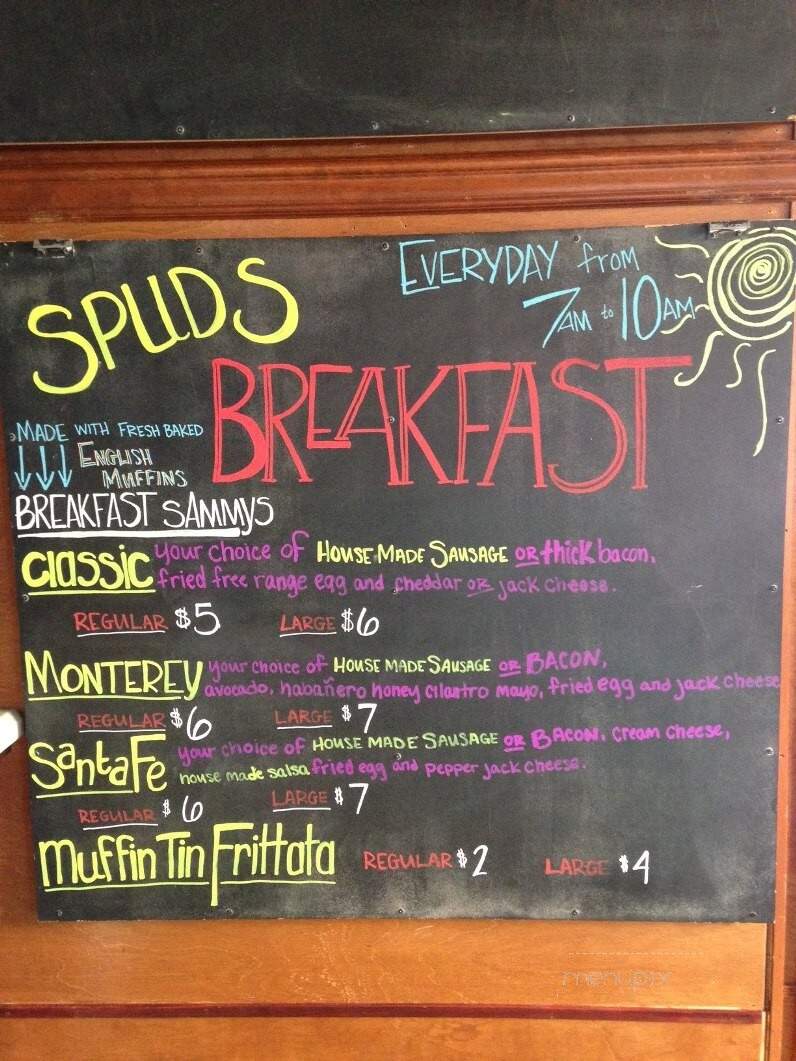 SPUDS
EVERYDAY from
7AM to 10AM
BREAKFAST
MADE WITH FRESH BAKED
ENGLISH
MUFFINS
BREAKFAST SAMMYS
Classic your choice of HOUSE MADE SAUSAGE OR thick bacon,
fried free range egg and cheddar OR jack cheese.
REGULAR $5 LARGE $6
MONTEREY your choice of HOUSE MADE SAUSAGE OR BACON,
avocado, habañero honey cilantro mayo, fried egg and jack cheese
REGULAR $6 LARGE $7
Santa Fe your choice of HOUSE MADE SAUSAGE OR BACON, cream cheese,
house made salsa fried egg and pepper jack cheese.
REGULAR $6 LARGE $7
Muffin Tin Frittata REGULAR $2 LARGE $4
menupix